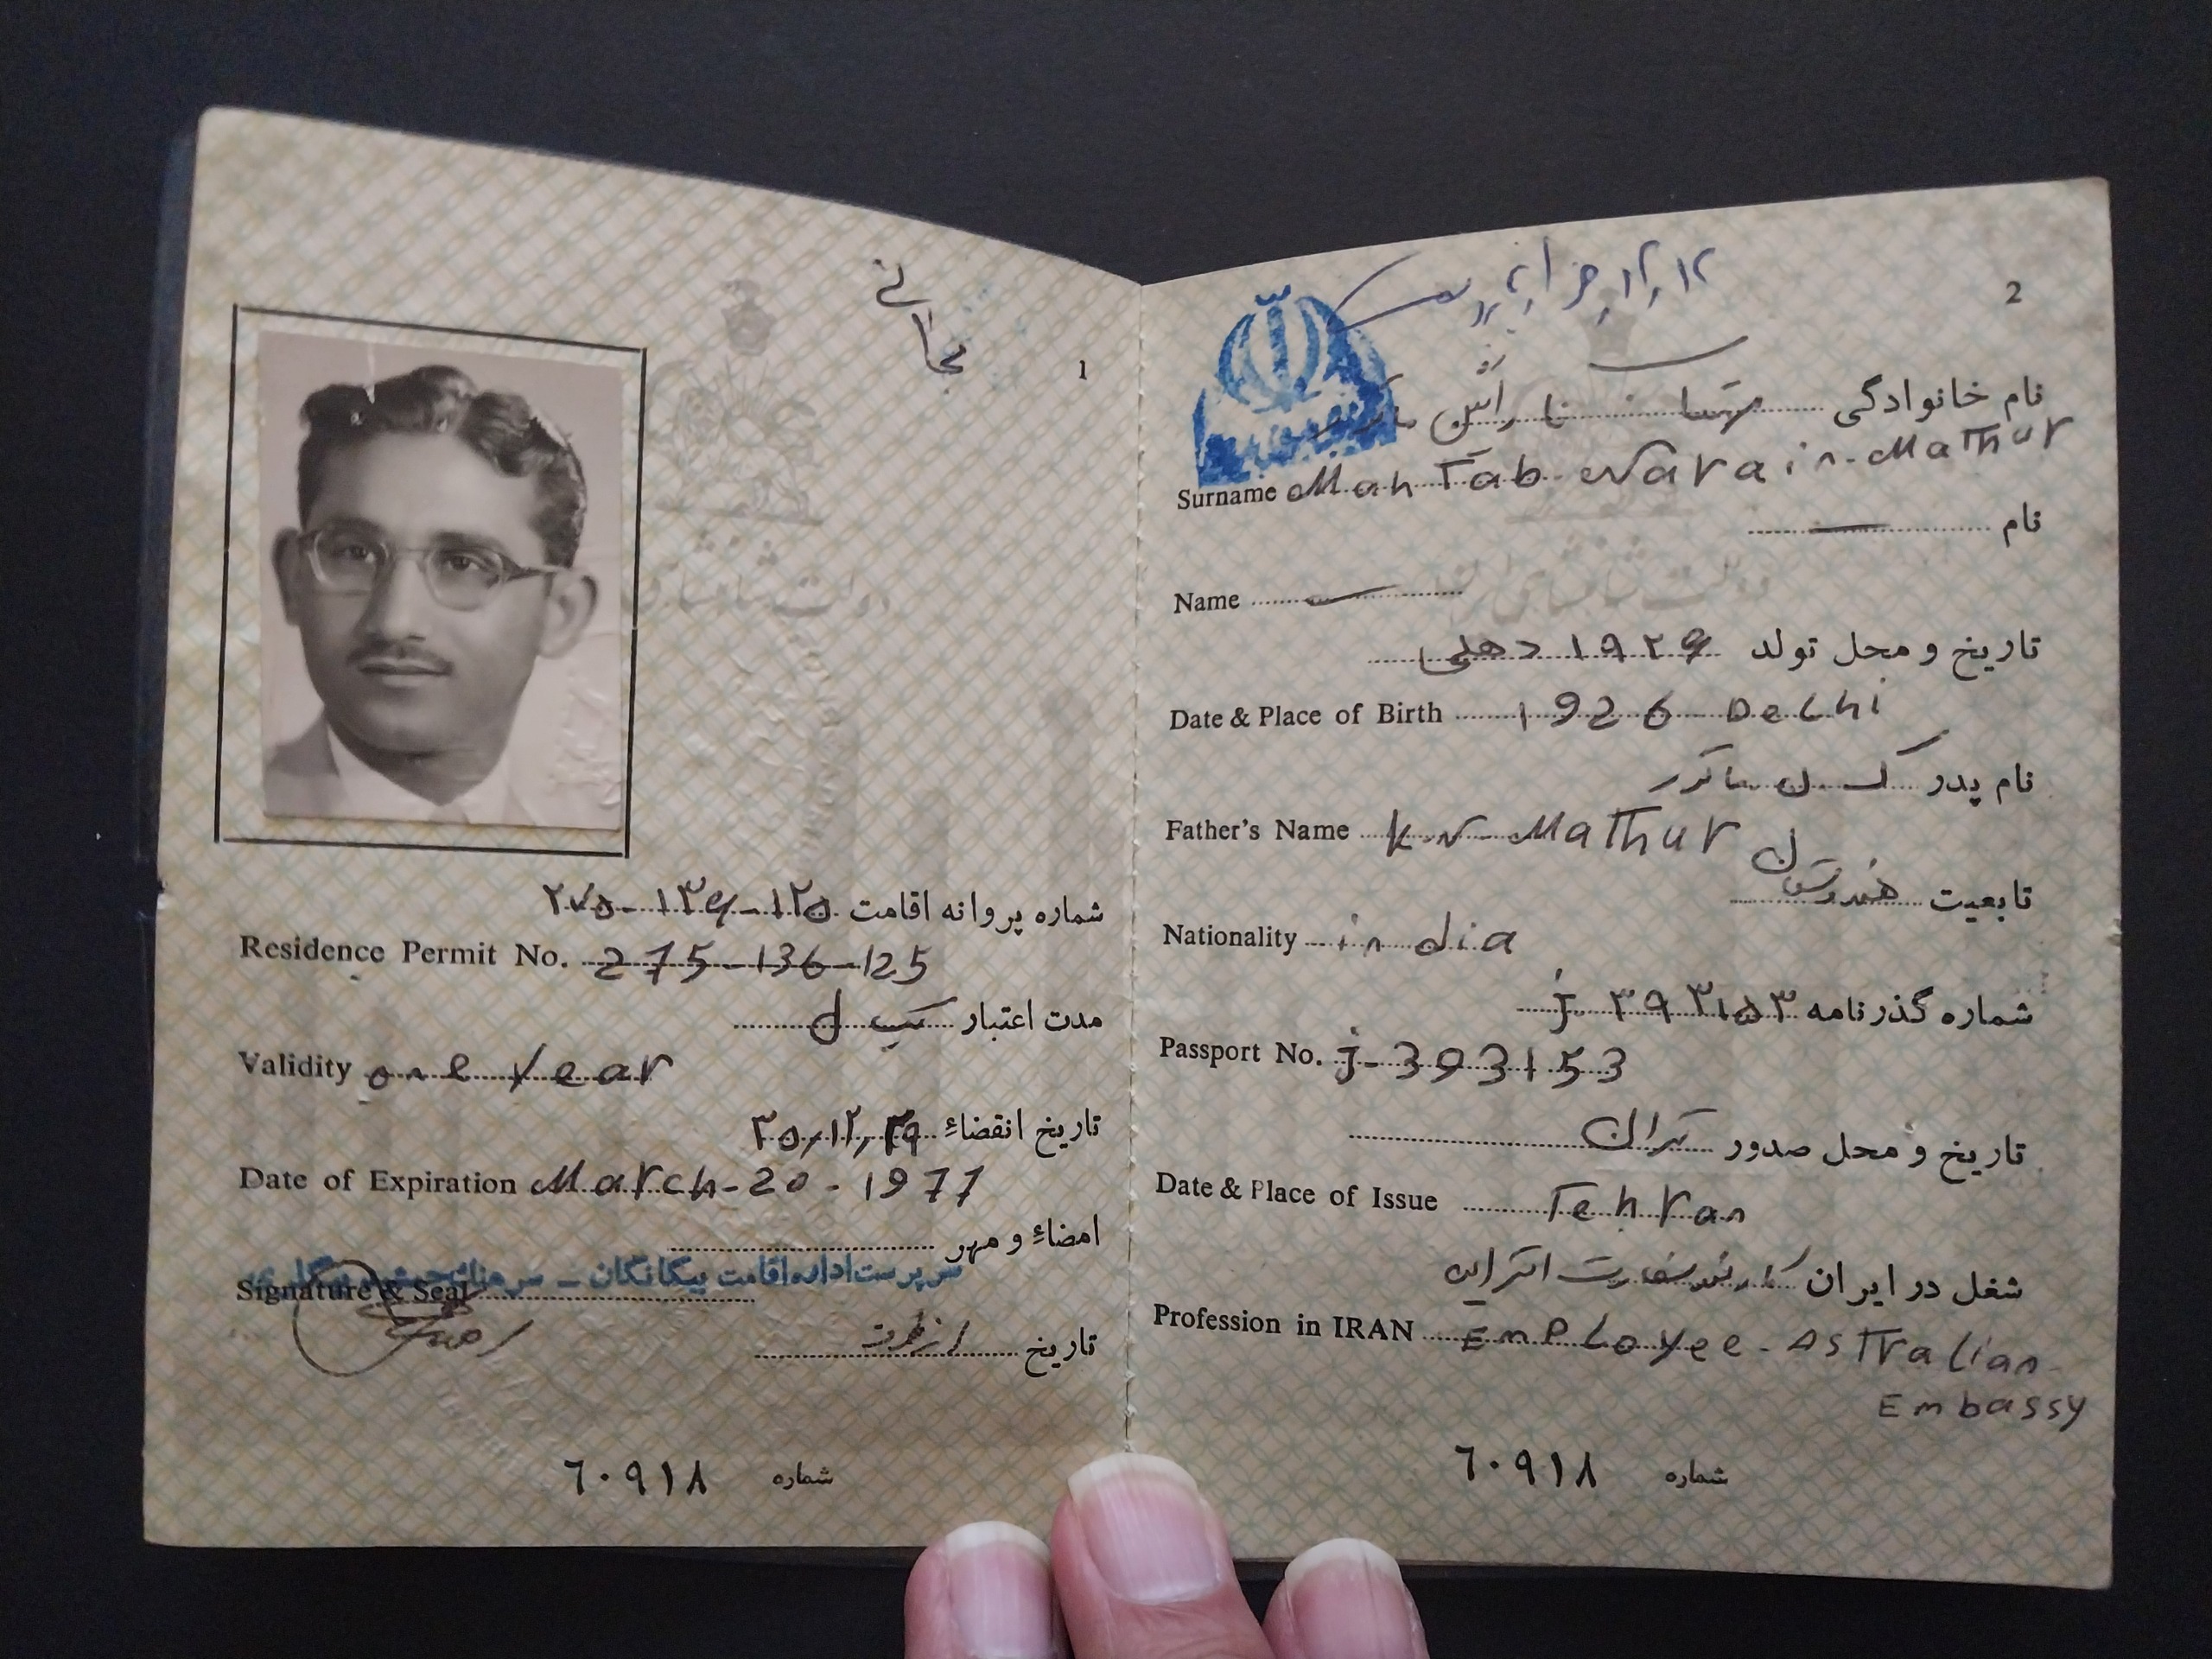 مجانی
1
شماره پروانه اقامت ۲۷۵-۱۳۶-۱۲۵
Residence Permit No. 275-136-125
مدت اعتبار یکسال
Validity one year
تاریخ انقضاء
Date of Expiration March-20-1977
امضاء و مهر
سرپرست اداره اقامت بیگانگان - سرهنگ
Signature & Seal
تاریخ از طرف
شماره ٦٠٩١٨
2
نام خانوادگی مهتاب ناراین ماتور
Surname Mahtab Narain-Mathur
نام —
Name —
تاریخ و محل تولد ۱۹۲۶ دهلی
Date & Place of Birth 1926 Delhi
نام پدر ک ن ماتور
Father's Name K.N-Mathur
تابعیت هندوستان
Nationality india
شماره گذرنامه j-۳۹۳۱۵۳
Passport No. j-393153
تاریخ و محل صدور تهران
Date & Place of Issue Tehran
شغل در ایران کارمند سفارت استرالیا
Profession in IRAN Employee-Astralian
Embassy
شماره ٦٠٩١٨